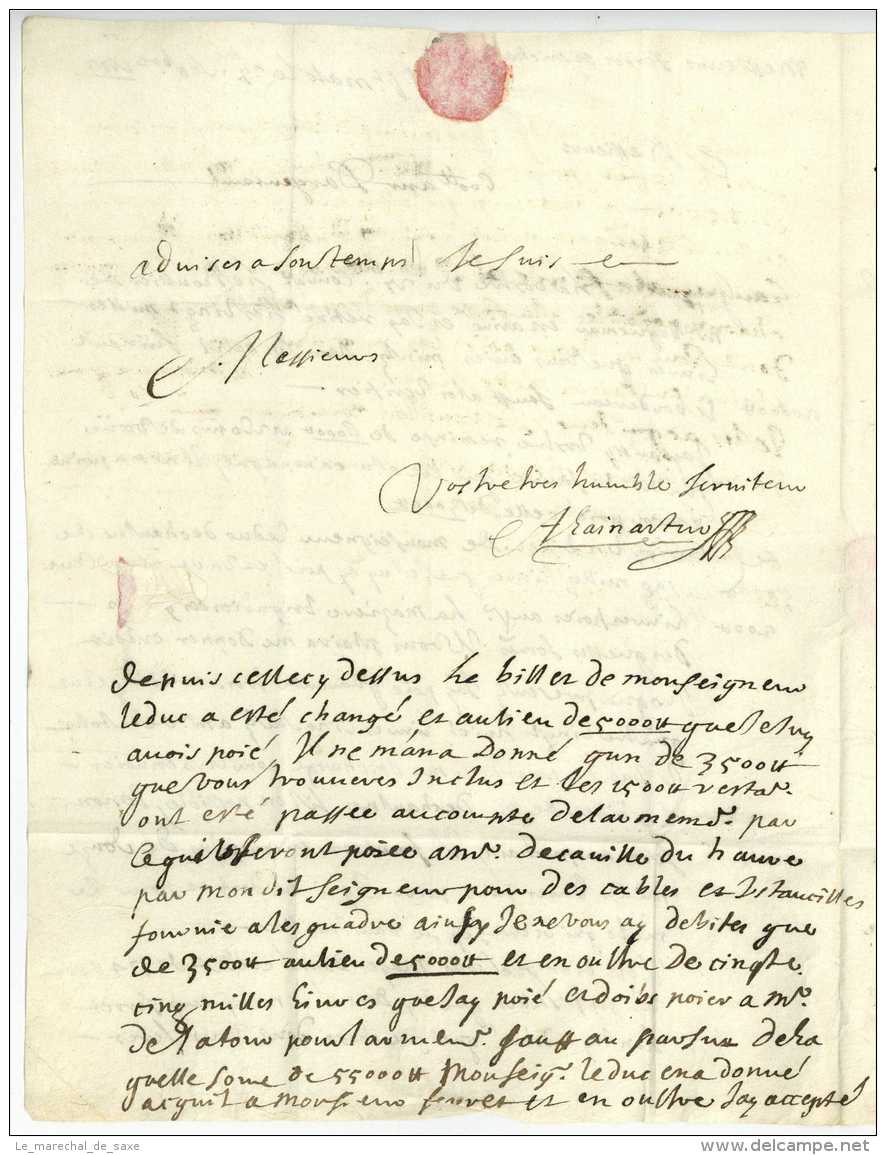 adviser a son temps Je suis
Messieurs
Vostre tres humble serviteur
depuis cellecy dessus Le billet de monseigneur
le duc a esté changé et au lieu de 5000tt que Je luy
avois poié Il ne m'en a Donné qun de 3500tt
que vous trouveres Inclus et Les 1500tt restan.
ont esté passee au compte de larmemr. par
ce quils seront poiee a Mr. de caville du havre
par mon dit seigneur pour des cables et Ustancilles
fournie a lesquadre ainsy Je ne vous ay debites que
de 3500tt au lieu de 5000tt et en oultre De cinqte.
cinq milles Livres que Jay poié et doibs poier a Mr.
de Latour pour larmemr. sauff au parsur de La
quelle some de 55000tt Monseigr. le duc en a donné
acquit a Monsieur et en oultre Jay accepté
Le_marechal_de_saxe
www.delcampe.net